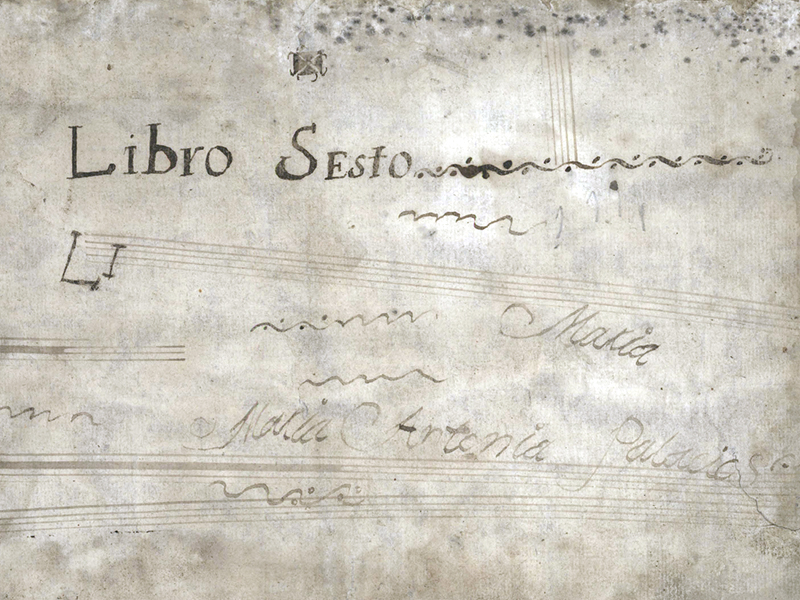 Libro Sesto
LI
Maria
Maria Antonia Palacios